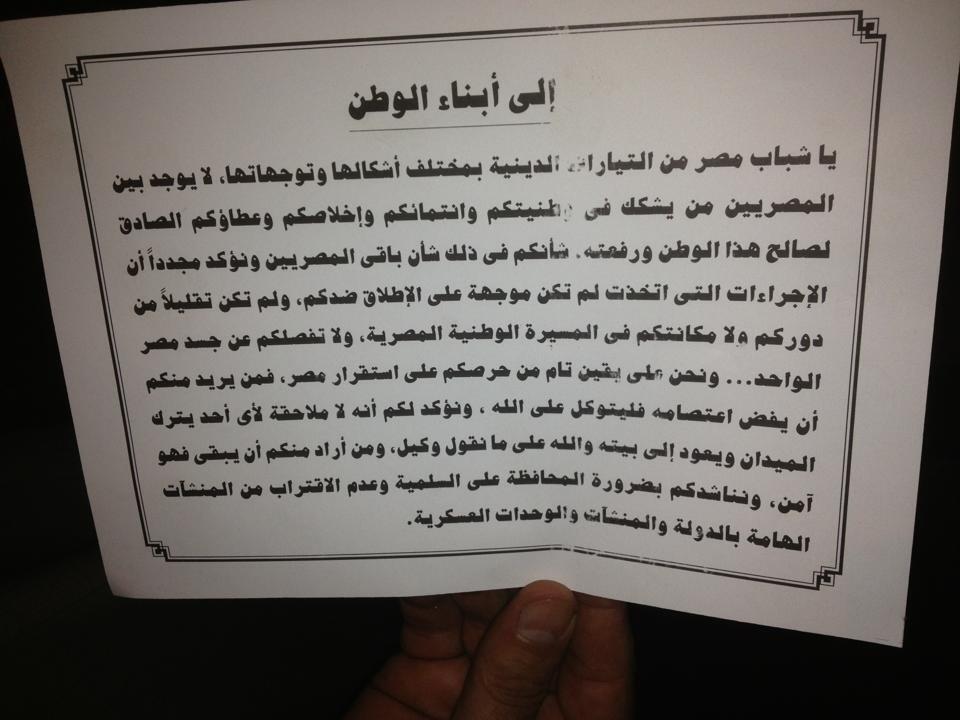 إلى أبناء الوطن
يا شباب مصر من التيارات الدينية بمختلف أشكالها وتوجهاتها، لا يوجد بين
المصريين من يشكك فى وطنيتكم وانتمائكم وإخلاصكم وعطاؤكم الصادق
لصالح هذا الوطن ورفعته. شأنكم فى ذلك شأن باقى المصريين ونؤكد مجدداً أن
الإجراءات التى اتخذت لم تكن موجهة على الإطلاق ضدكم، ولم تكن تقليلاً من
دوركم ولا مكانتكم فى المسيرة الوطنية المصرية، ولا تفصلكم عن جسد مصر
الواحد... ونحن على يقين تام من حرصكم على استقرار مصر، فمن يريد منكم
أن يفض اعتصامه فليتوكل على الله ، ونؤكد لكم أنه لا ملاحقة لأى أحد يترك
الميدان ويعود إلى بيته والله على ما نقول وكيل، ومن أراد منكم أن يبقى فهو
آمن، ونناشدكم بضرورة المحافظة على السلمية وعدم الاقتراب من المنشآت
الهامة بالدولة والمنشآت والوحدات العسكرية.